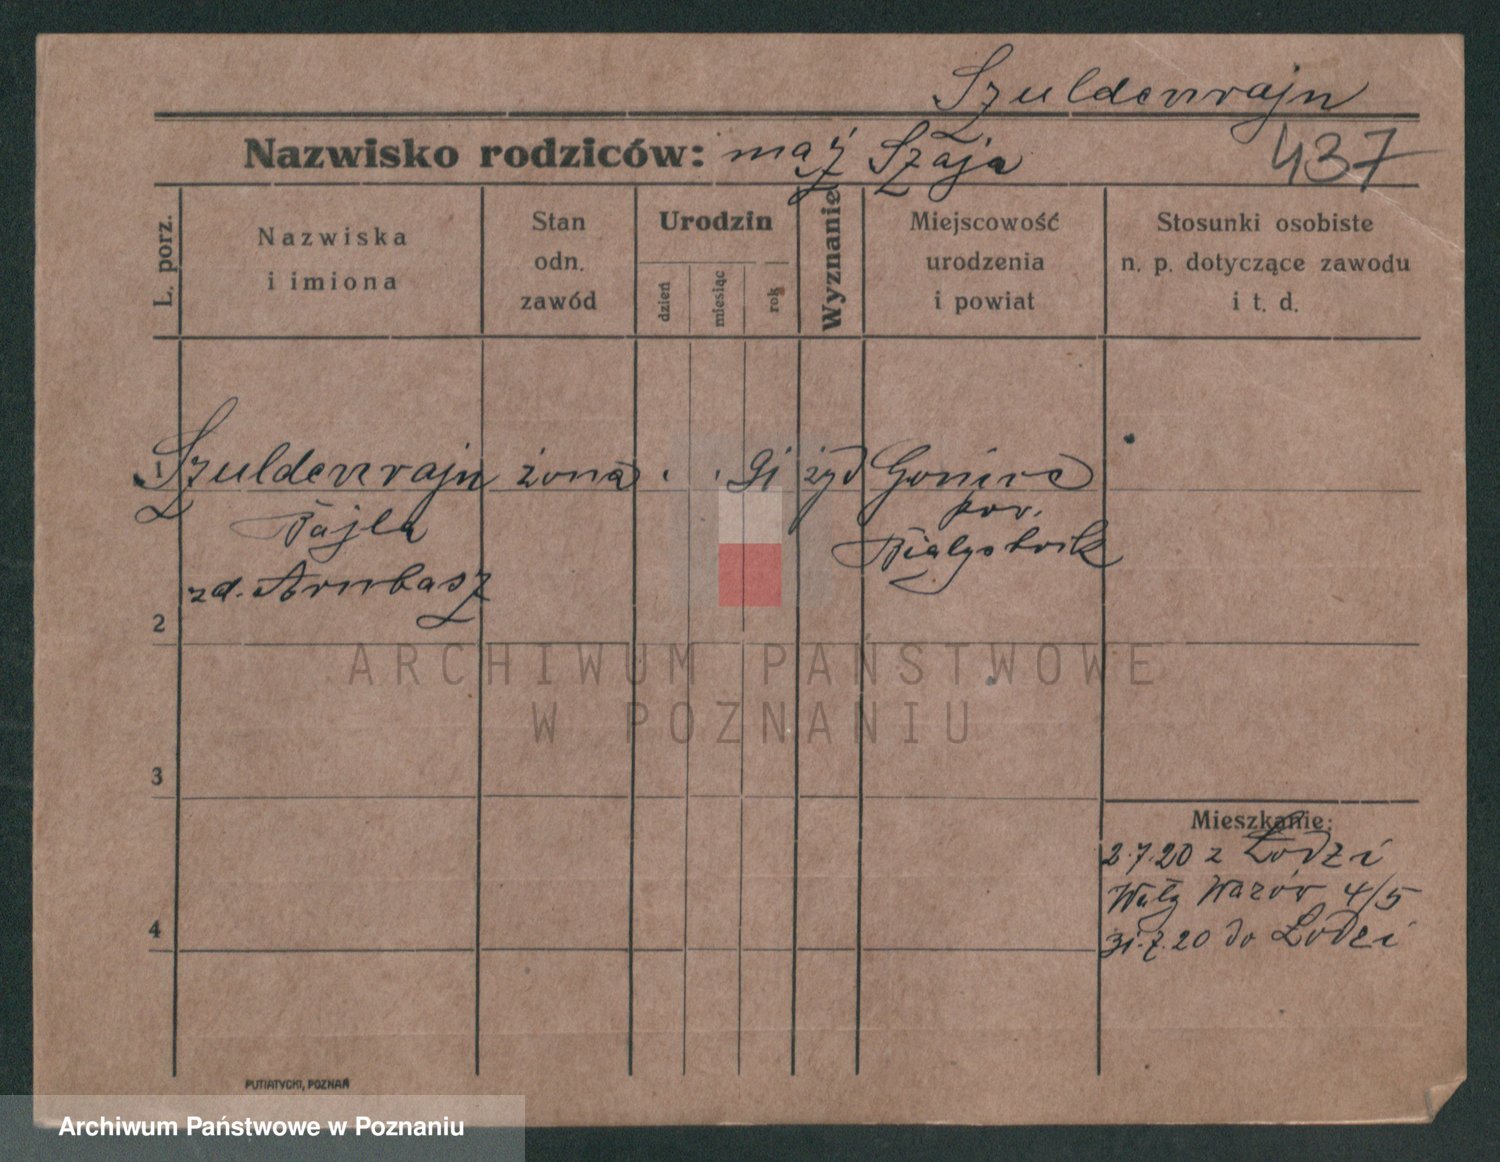 Szuldenrajn
Nazwisko rodziców: mąż Szaja 437
L. porz.
Nazwiska
i imiona
Stan
odn.
zawód
Urodzin
dzień
miesiąc
rok
Wyznanie
Miejscowość
urodzenia
i powiat
Stosunki osobiste
n. p. dotyczące zawodu
i t. d.
1 Szuldenrajn żona . . 91 żyd
pow.
Białystok
Tajla
zd.
2
ARCHIWUM PAŃSTWOWE
W POZNANIU
3
Mieszkanie:
2.7.20 z Łodzi
4/5
4
31.7.20 do Łodzi
PUTIATYCKI, POZNAŃ
Archiwum Państwowe w Poznaniu